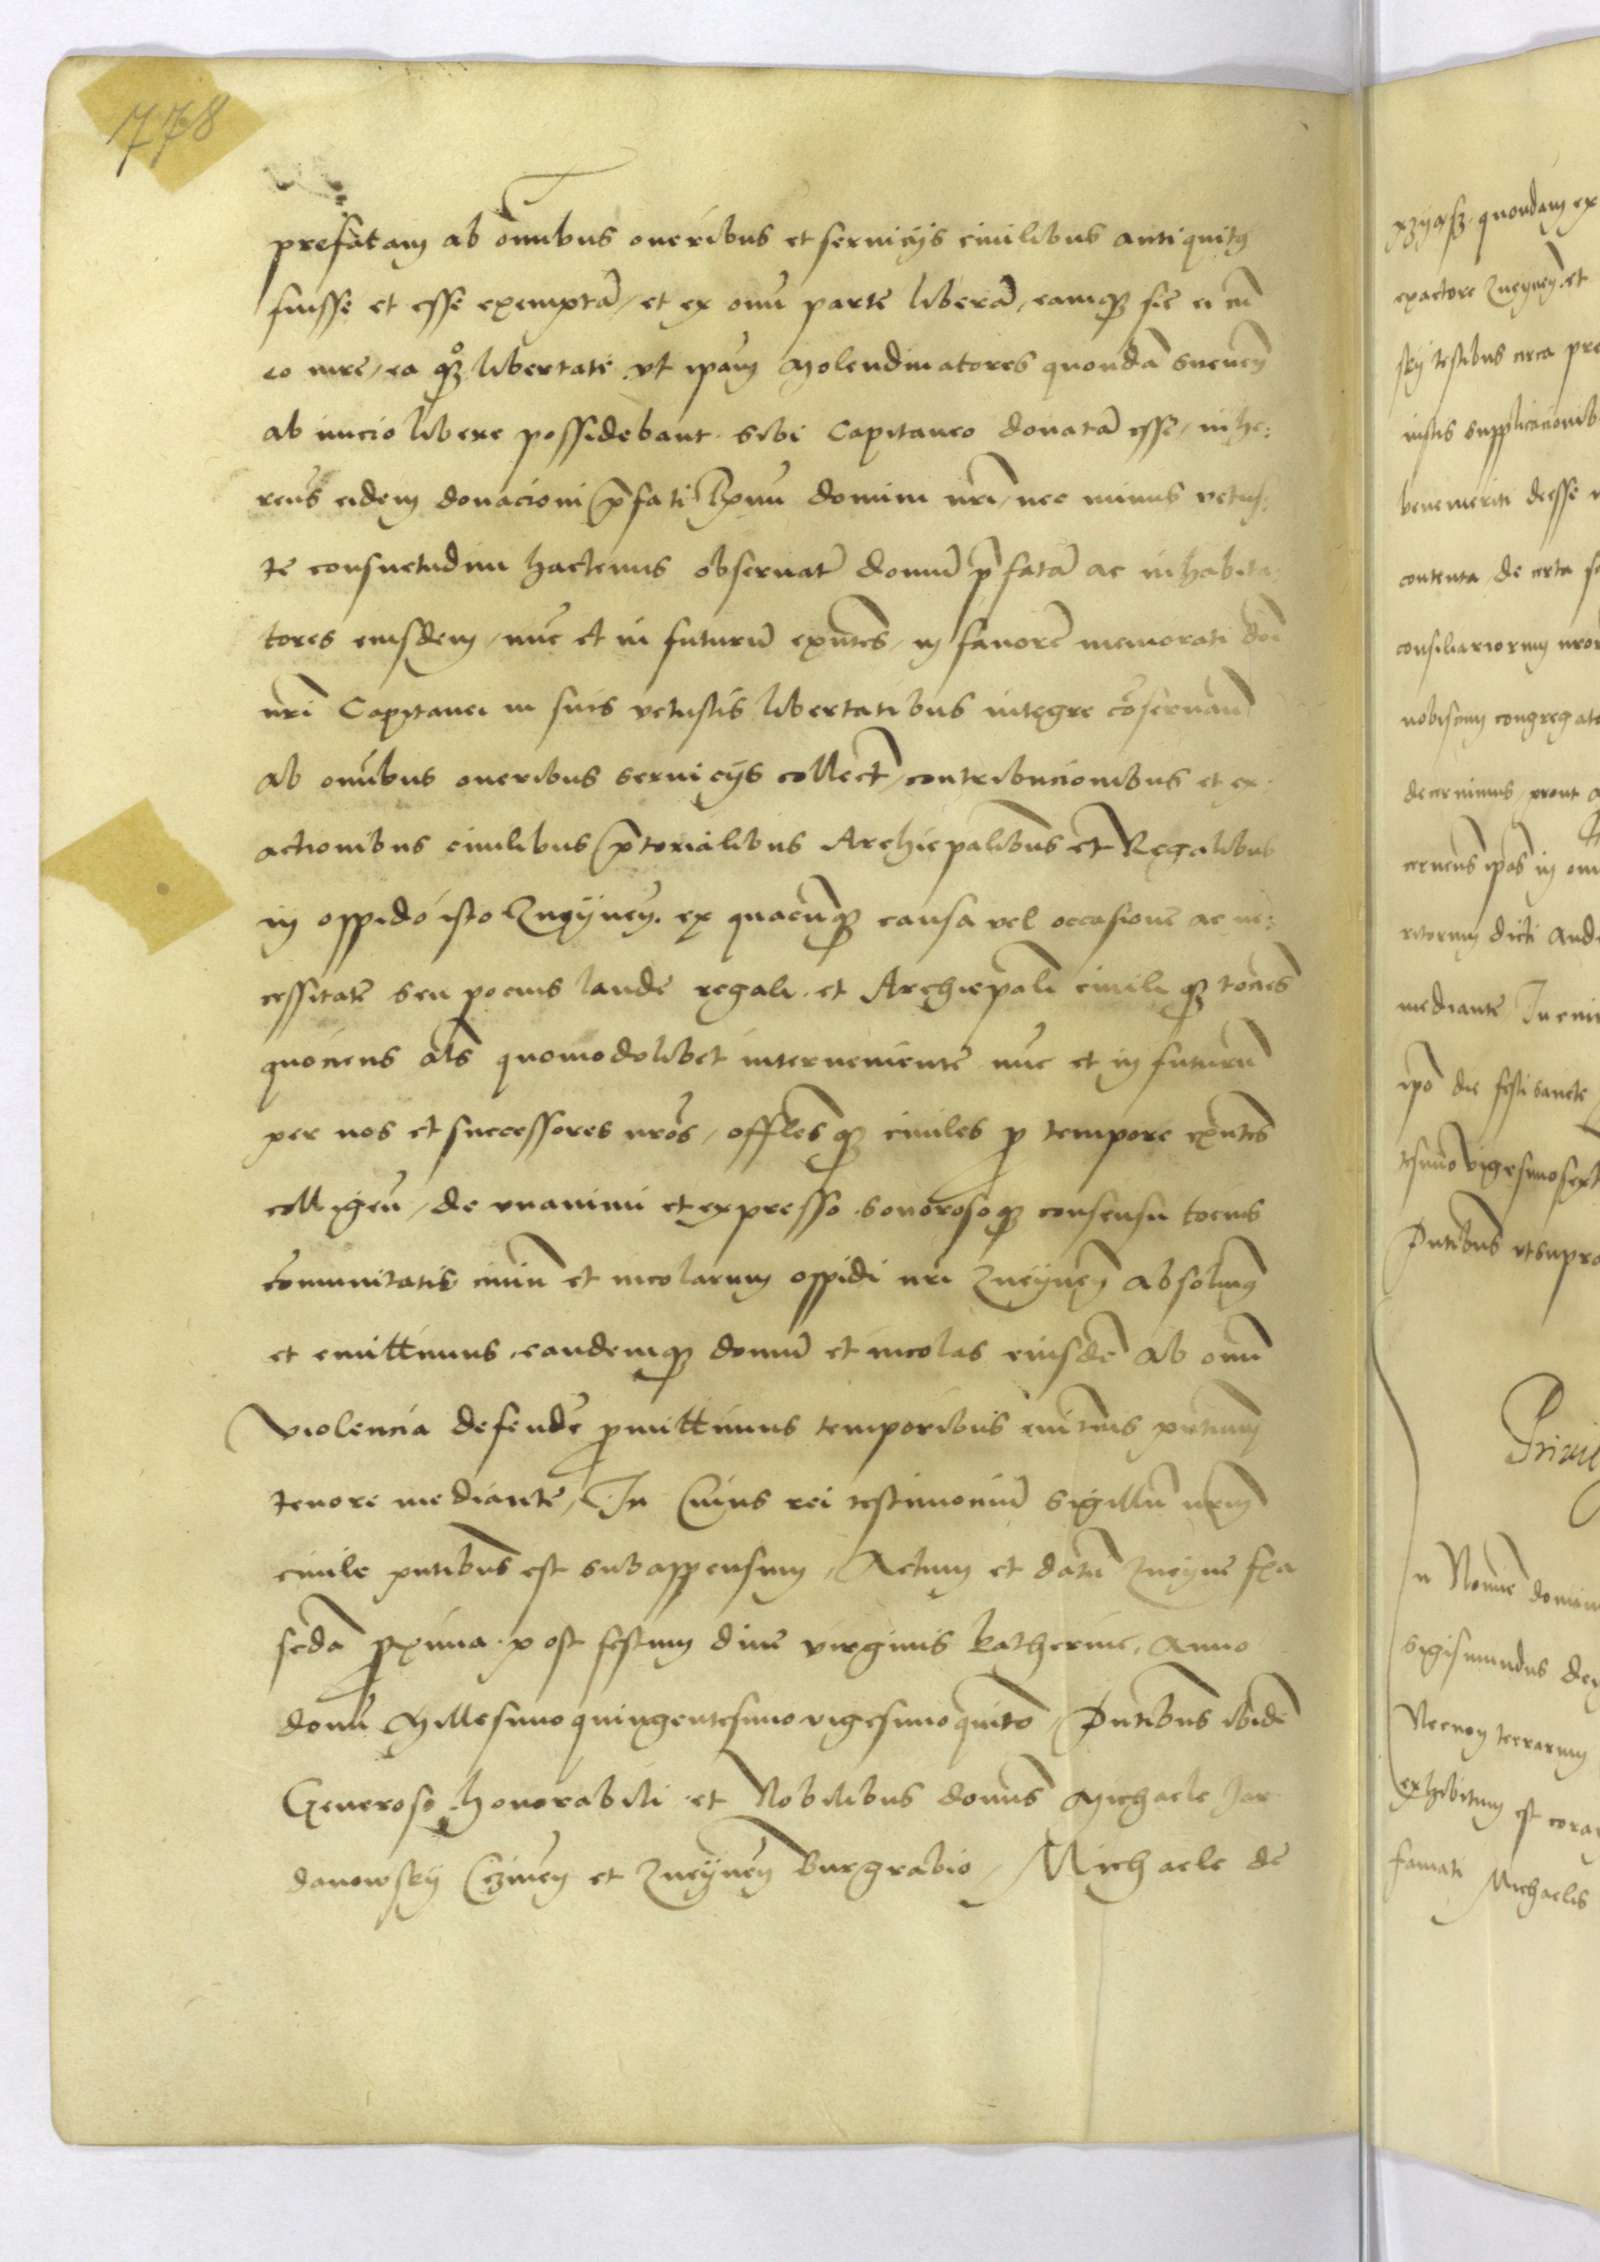 778
prefatam ab omibus oneribus et seruicijs ciuilibus antiquitg
fuisse et esse exemptā, et ex omi parte liberā, eamqz sic ei cū
eo iure, ea qz libertate vt ipam Molendinatores quondā sneuen
ab inicio libere possidebant. sibi Capitaneo donatā esse, inhe:
rens eidem donacioni p̄fati domini nri, nec minus vetus:
te consuetudini hactenus obseruate domū p̄fatā ac inhabita
tores eiusdem, nuc et in futurū exntes, in fauorē memorati dni
nri Capitanei in suis vetustis libertatibus integre cōseruan
ab omibus oneribus seruicijs collect, contribucionibus et ex:
actionibus ciuilibus p̄torialibus Archiepalibus et Regalibus
in oppido isto Zneynen. ex quacuqz causa vel occasione ac ne:
cessitate seu pocius laude regali et Archiepali ciuili qz tocies
quociens als quomodolibet interueniente nuc et in futurū
per nos et successores nros, offles qz ciuiles p tempore exntes
colligen, de vnanimi et expresso sonorosoqz consensu tocius
cōmunitatis ciuiū et incolarum oppidi nri Zneynen absoluimg
et emittimus, eandemqz domū et incolas eiusdē ab omi
violencia defendē pmittimus temporibus euiternis pntium
tenore mediante, In Cuius rei testimoniū sigillū nrm
ciuile pntibus est subappensum, Actum et datū Zneyne fra
scda pxima post festum diue virginis katherine, Anno
domi Millesimo quingentesimo vigesimo quinto, Pntibus ibidē
Generoso honorabili et Nobilibus domis Michaele Jar
danowsky Czinen et Zneynen burgrabio, Michaele de
quondam ex
exactore Zneynen et
sky testibus circa pre
iustis supplicacionib
benemeriti deesse
contenta de certa
consiliariorum nror
nobiscum congregat
decernimus, prout
cernens ipos in om
ritorum dicti And
mediante In cui
ipo die festi sancte
tesimo vigesimo sext
Pntibus vt supra
Priui
n Nomine domin
Sigismundus dei
Necnon terrarum
exhibitum est cora
famati Michaelis